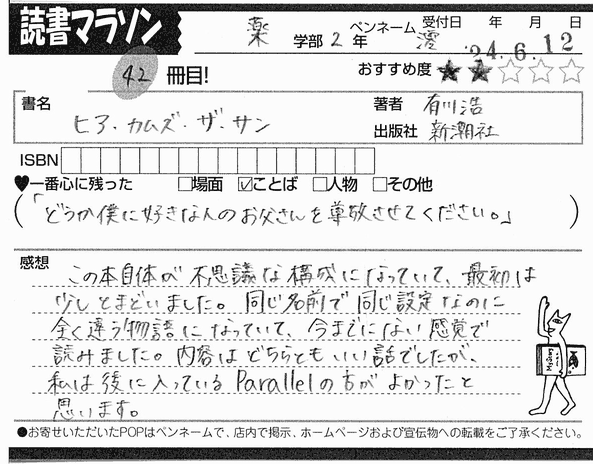 読書マラソン
薬 学部 2 年 ペンネーム 澪 受付日 年 月 日
'24.6.12
42 冊目! おすすめ度 ★★☆☆☆
書名 ヒア・カムズ・ザ・サン
著者 有川浩
出版社 新潮社
ISBN
♥一番心に残った □場面 ☑ことば □人物 □その他
(「どうか僕に好きな人のお父さんを尊敬させてください。」)
感想
この本自体が不思議な構成になっていて、最初は
少しとまどいました。同じ名前で同じ設定なのに
全く違う物語になっていて、今までにない感覚で
読みました。内容はどちらともいい話でしたが、
私は後に入っているParallelの方がよかったと
思います。
●お寄せいただいたPOPはペンネームで、店内で掲示、ホームページおよび宣伝物への転載をご了承ください。